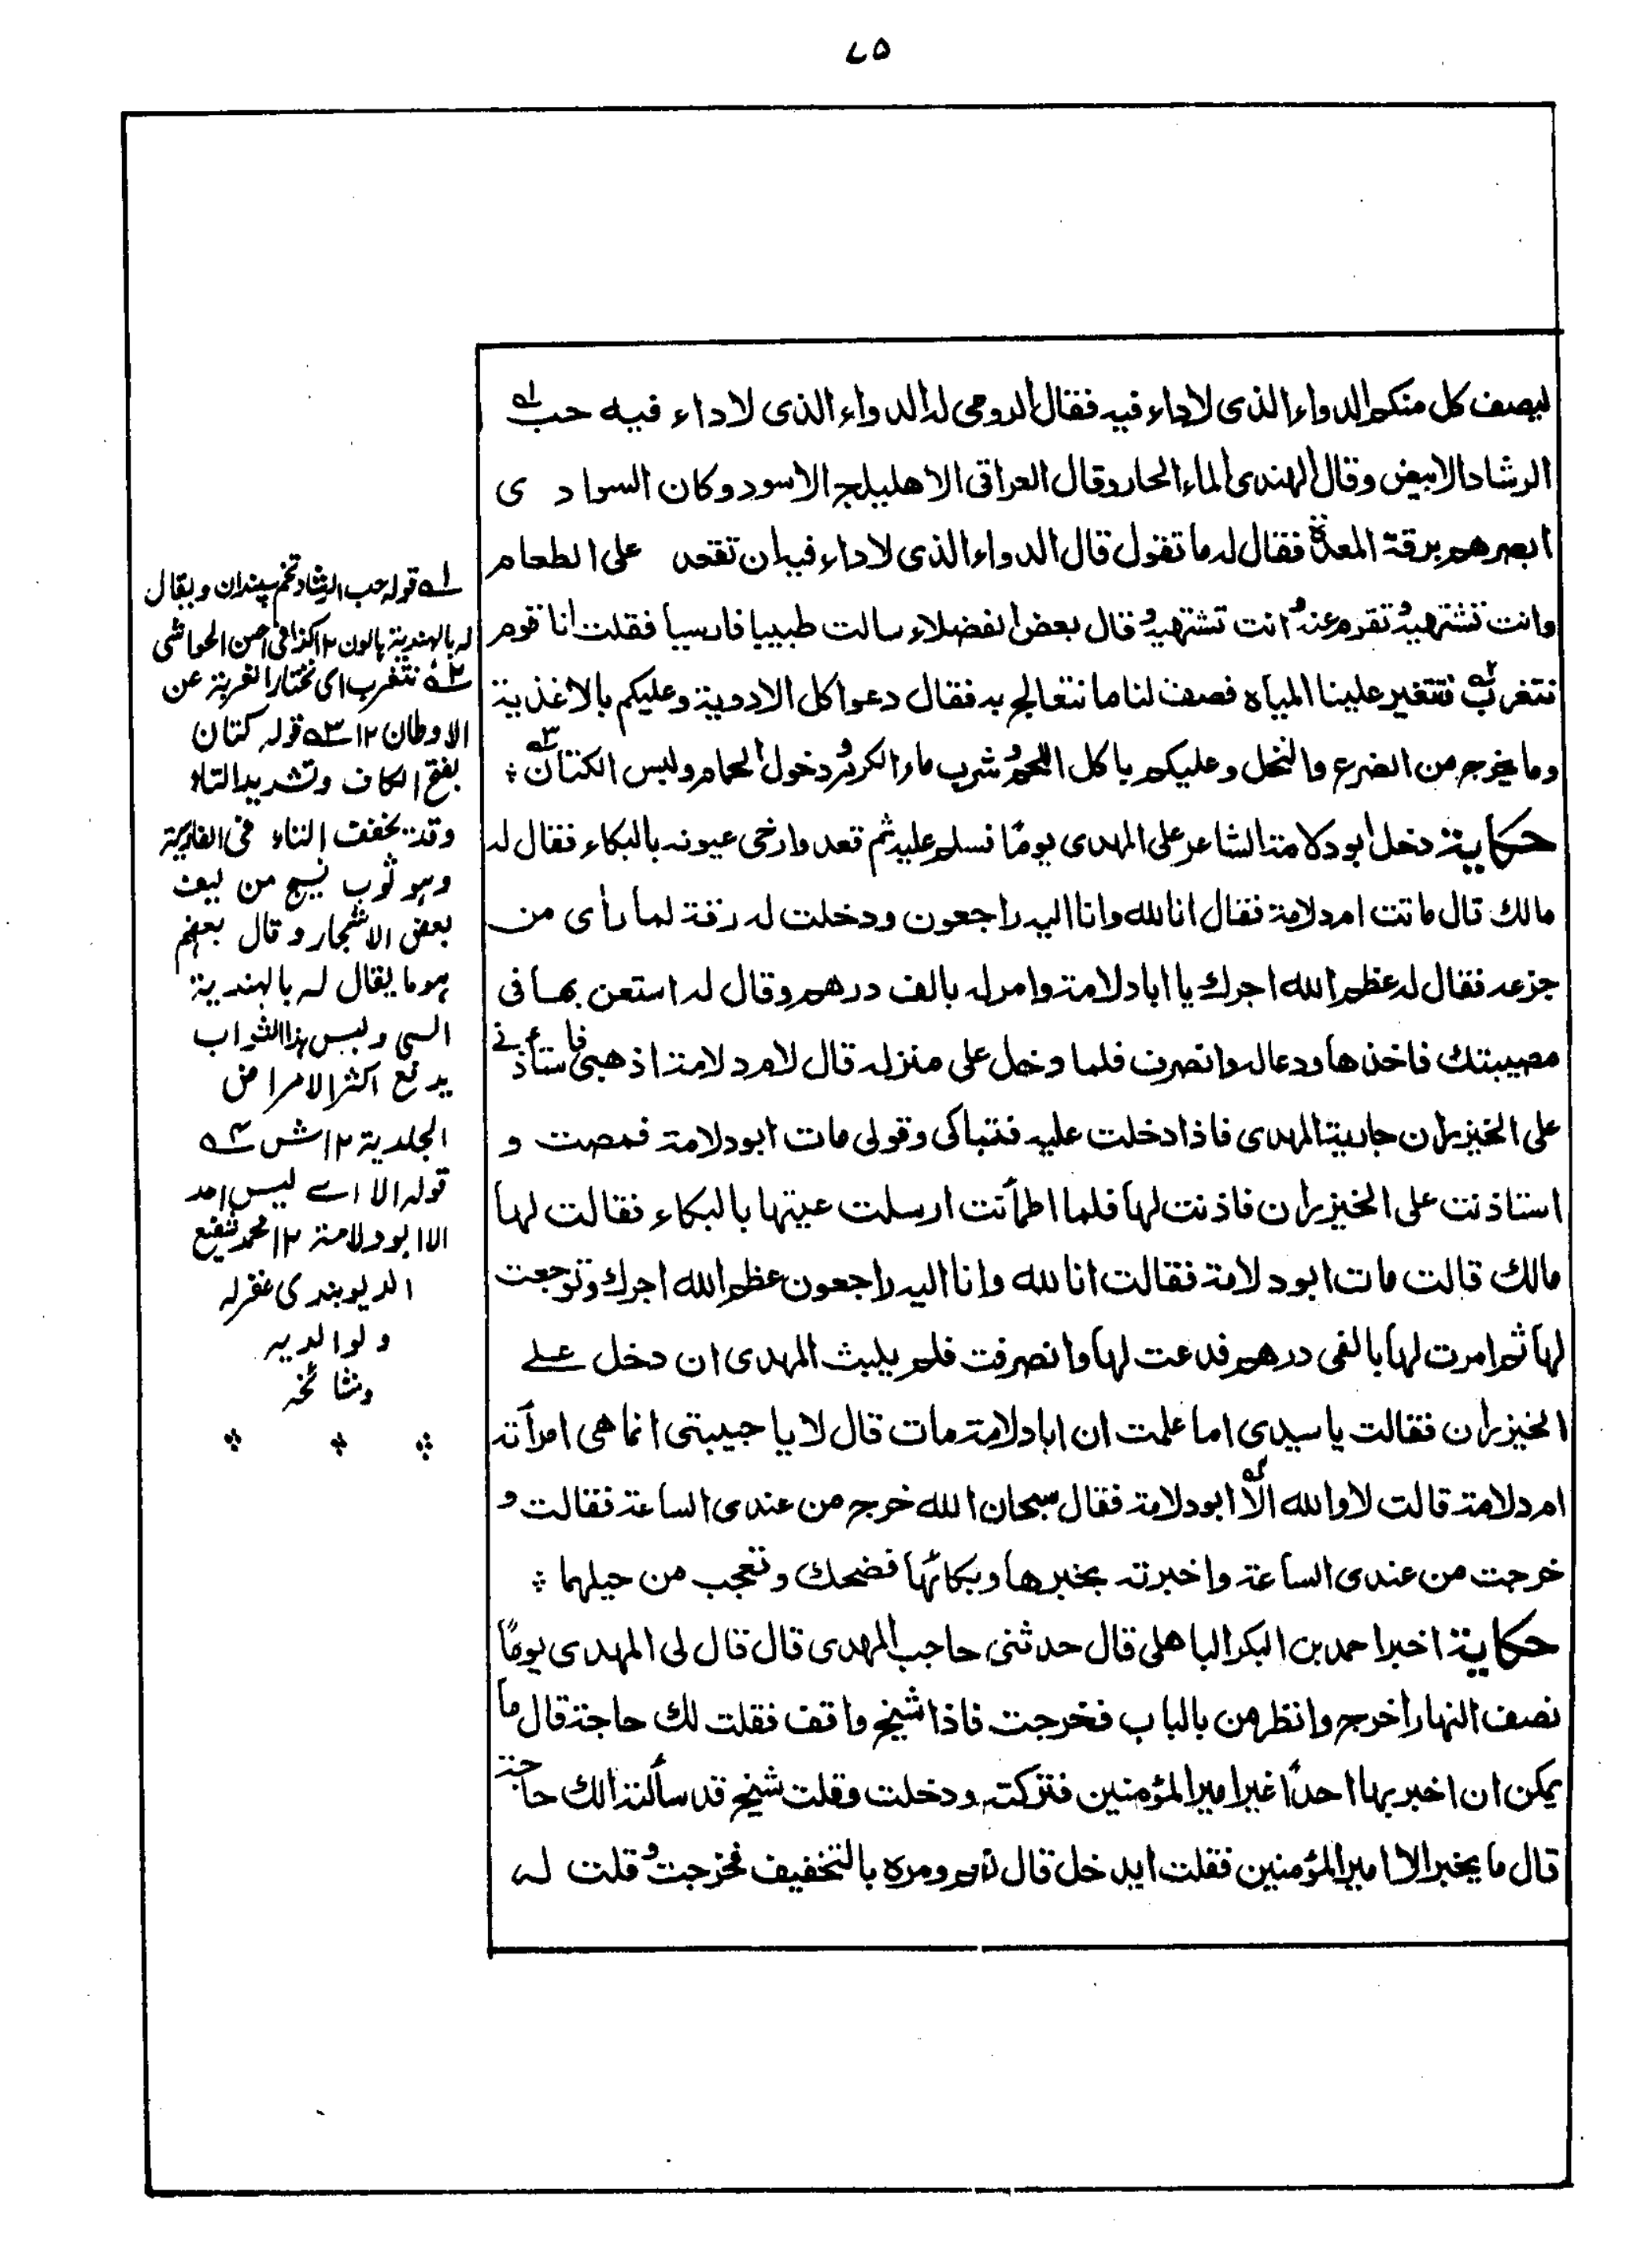 ۷۵
ليصف كل منكم الدواء الذى لاداء فيه فقال الرومى له الدواء الذى لاداء فيه حب<sup>۱ه</sup>
الرشاد الابيض وقال الهندى الماء الحار وقال العراقى الاهليلج الاسود وكان السوادى
ابصرهم برقة المعدة فقال له ما تقول قال الدواء الذى لاداء فيه ان تقعد على الطعام
وانت تشتهيه وتقوم عنه وانت تشتهيه وقال بعض الفضلاء سالت طبيبا فارسيا فقلت انا قوم
نتغرب<sup>۲ه</sup> فتتغير علينا المياه فصف لنا ما نتعالج به فقال دعوا كل الادوية وعليكم بالاغذية
وما يخرج من الضرع والنحل وعليكم باكل اللحم وشرب ماء الكرم ودخول الحمام ولبس الكتان<sup>۳ه</sup> ؞
حكاية دخل ابو دلامة الشاعر على المهدى يومًا فسلم عليه ثم قعد وارخى عيونه بالبكاء فقال له
مالك قال ماتت ام دلامة فقال انا لله وانا اليه راجعون ودخلت له رقة لما رأى من
جزعه فقال له عظم الله اجرك يا ابا دلامة وامر له بالف درهم وقال له استعن بها فى
مصيبتك فاخذها ودعا له وانصرف فلما دخل على منزله قال لام دلامة اذهبى فاستأذنى
على الخيزران جارية المهدى فاذا دخلت عليه فتباكى وقولى مات ابو دلامة فمضت و
استاذنت على الخيزران فاذنت لها فلما اطمأنت ارسلت عينها بالبكاء فقالت لها
مالك قالت مات ابو دلامة فقالت انا لله وانا اليه راجعون عظم الله اجرك وتوجعت
لها ثم امرت لها بالفى درهم فدعت لها وانصرفت فلم يلبث المهدى ان دخل على
الخيزران فقالت يا سيدى اما علمت ان ابا دلامة مات قال لا يا حبيبتى انما هى امرأته
ام دلامة قالت لا والله الا<sup>۴ه</sup> ابو دلامة فقال سبحان الله خرج من عندى الساعة فقالت و
خرجت من عندى الساعة واخبرته بخبرها وبكائها فضحك وتعجب من حيلهما ؞
حكاية اخبر احمد بن ابكر الباهلى قال حدثنى حاجب المهدى قال قال لى المهدى يومًا
نصف النهار اخرج وانظر من بالباب فخرجت فاذا شيخ واقف فقلت لك حاجة قال ما
يمكن ان اخبر بها احدًا غير امير المؤمنين فتركته ودخلت وقلت شيخ قد سألته الك حاجة
قال ما يخبر الا امير المؤمنين فقلت ايدخل قال نعم ومره بالتخفيف فخرجت وقلت له
۱ه قوله حب الرشاد تخم سپندان ويقال
له بالهندية ہالون ۱۲ كذا فى احسن الحواشى
۲ه نتغرب اى نختار الغربة عن
الاوطان ۱۲ ۳ه قوله كتان
بفتح الكاف وتشديد التاء
وقد يخفف التاء فى الفارسية
وهو ثوب ينسج من ليف
بعض الاشجار وقال بعضهم
هو ما يقال له بالهندية
السى ولبس هذا الثواب
يدفع اكثر الامراض
الجلدية ۱۲ ش ۴ه
قوله الا اے ليس احد
الا ابو دلامة ۱۲ محمد شفيع
الديوبندى غفرله
ولوالديه
ومشائخه
؞ ؞ ؞